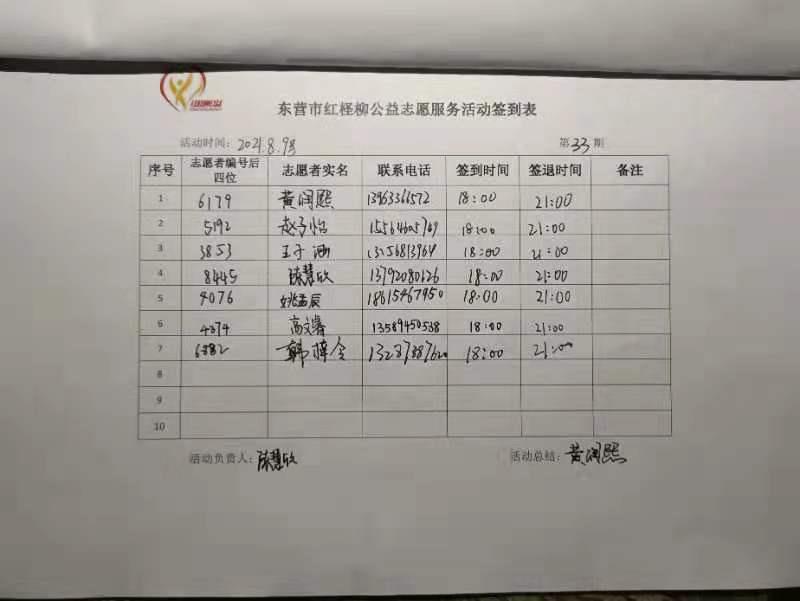 东营市红柽柳公益志愿服务活动签到表
活动时间：2021.8.9号 第33期
序号 志愿者编号后四位 志愿者实名 联系电话 签到时间 签退时间 备注
1 6179 黄润熙 13963366572 18:00 21:00
2 5192 赵子怡 15564605769 18:00 21:00
3 3853 王子涵 13256813964 18:00 21:00
4 8445 陈慧欣 13792080626 18:00 21:00
5 4076 姚孟辰 18615467950 18:00 21:00
6 4374 高文睿 13589450538 18:00 21:00
7 6882 18:00 21:00
8
9
10
活动负责人：陈慧欣 活动总结：黄润熙